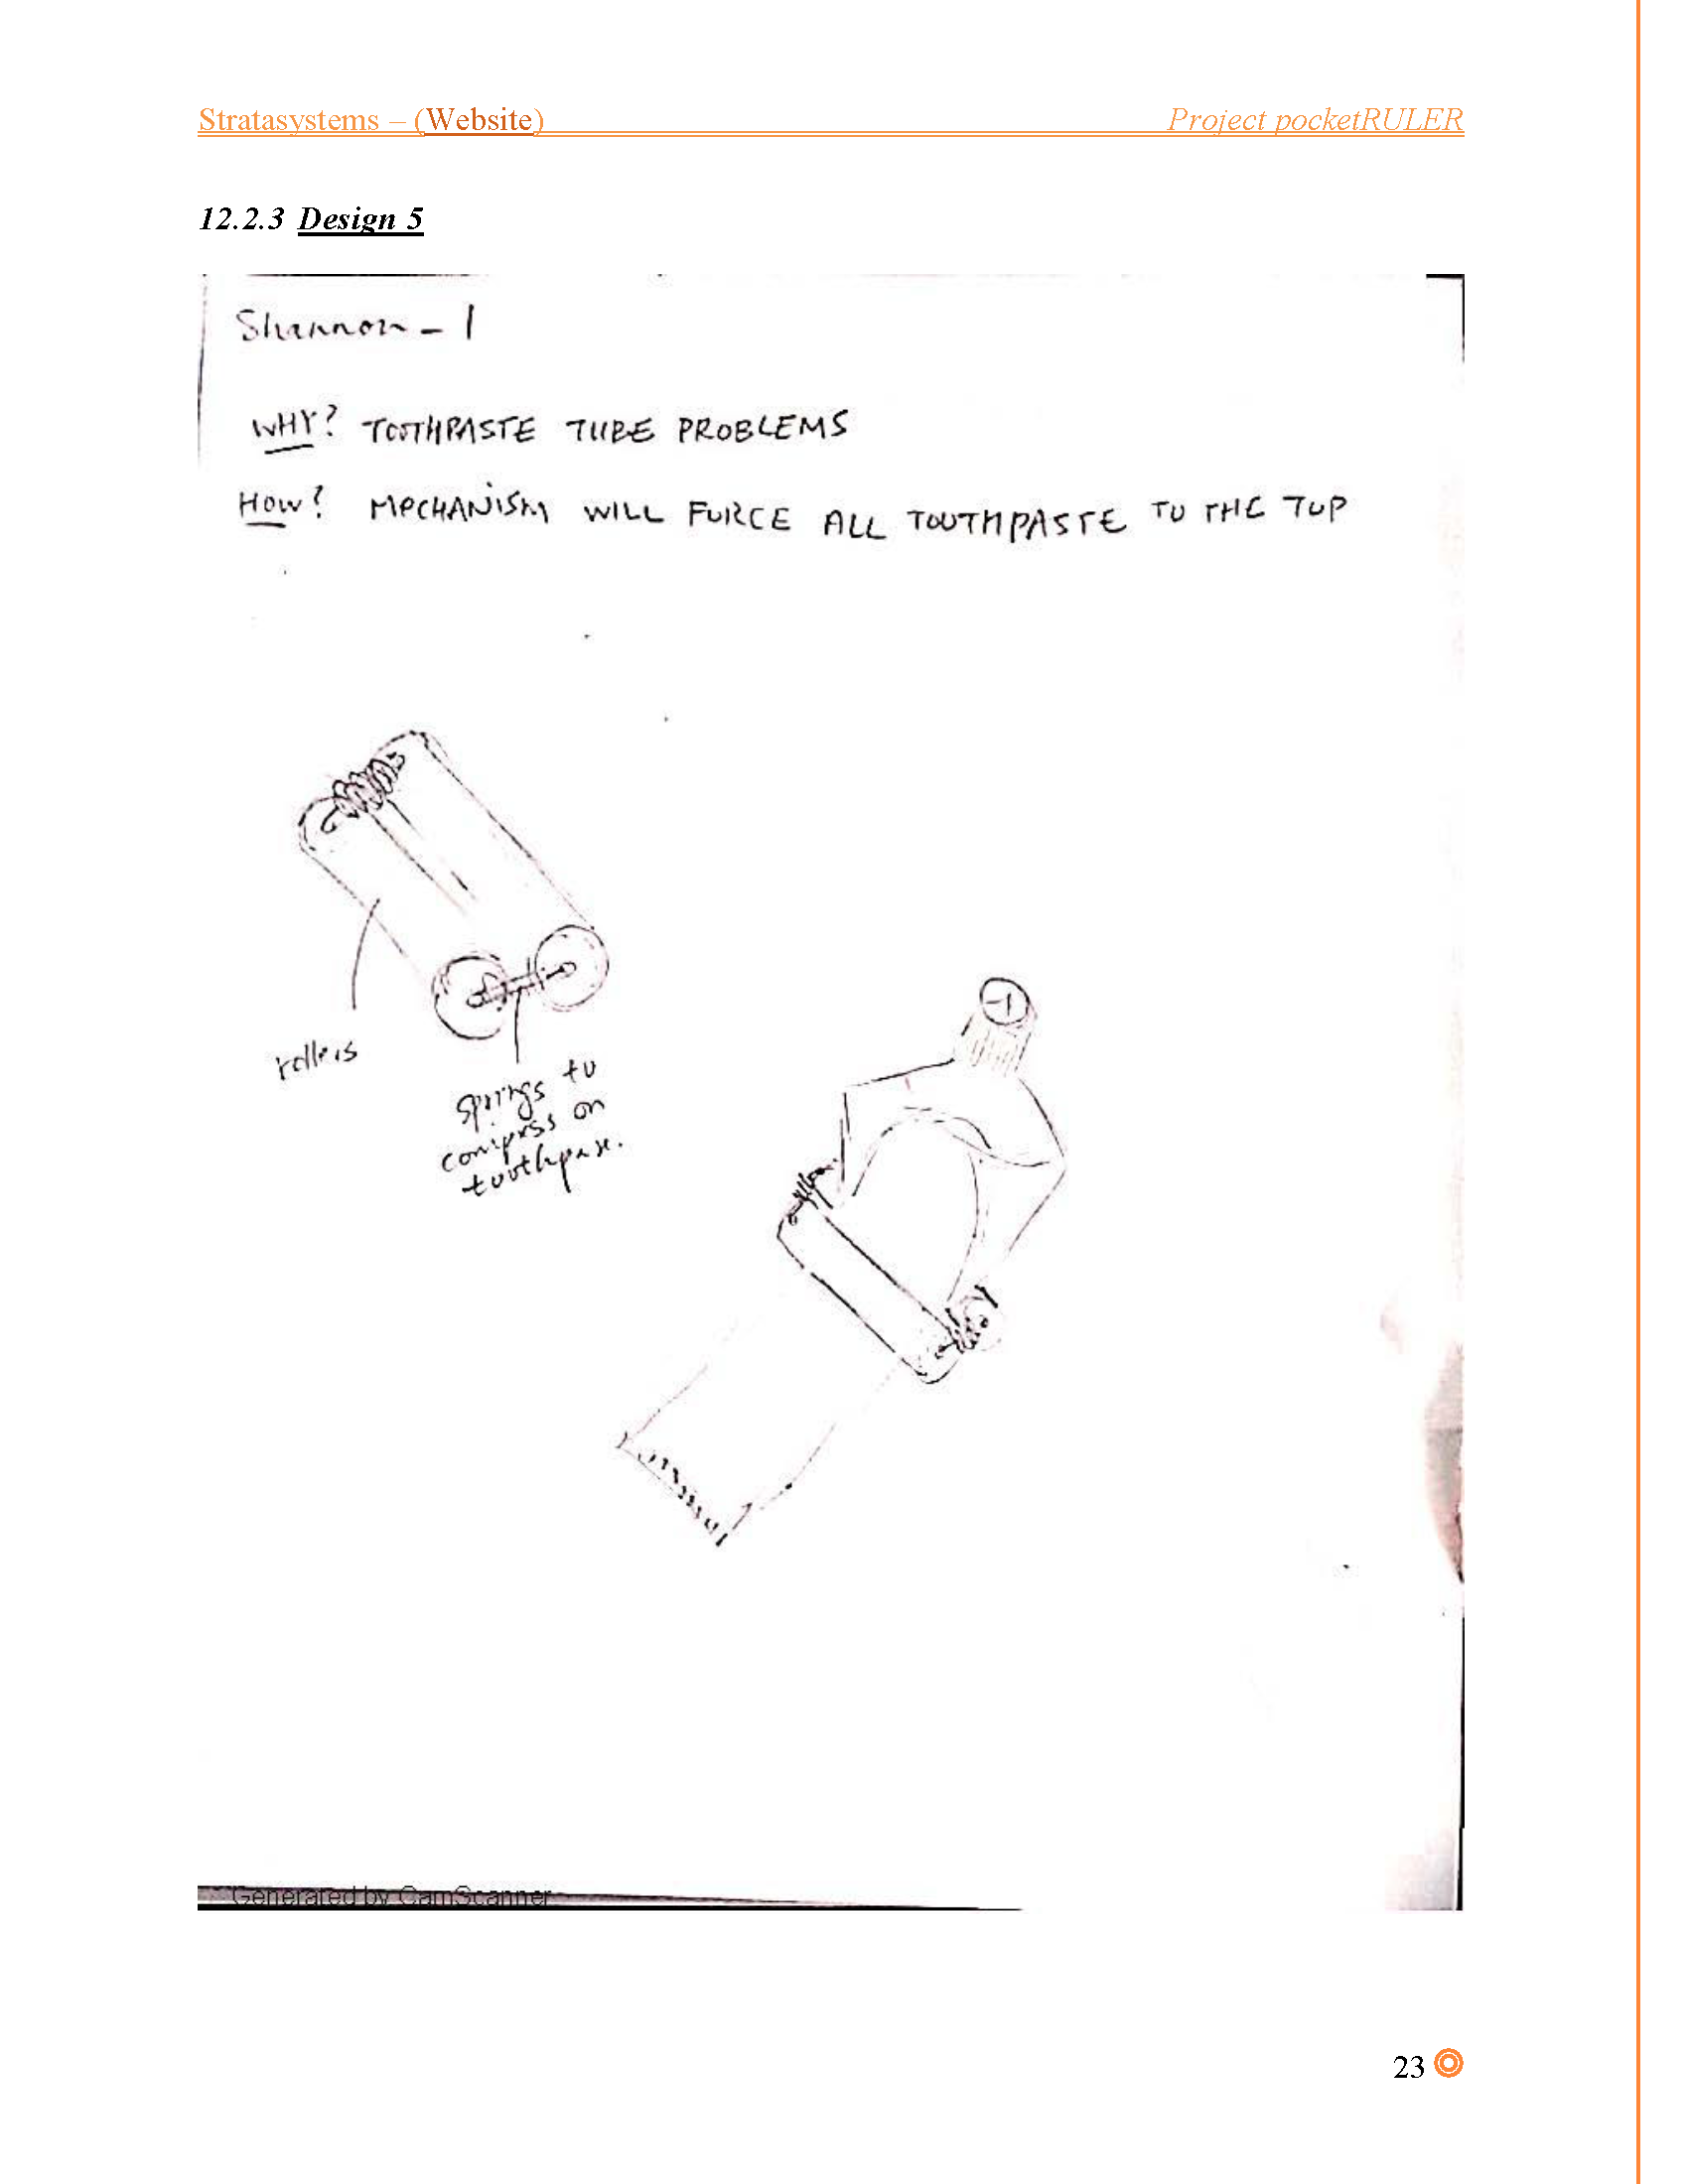 Stratasystems – (Website) Project pocketRULER
12.2.3 Design 5
Shannon - 1
WHY? TOOTHPASTE TUBE PROBLEMS
HOW? MECHANISM WILL FORCE ALL TOOTHPASTE TO THE TOP
rollers
springs to
compress on
toothpaste.
Generated by CamScanner
23